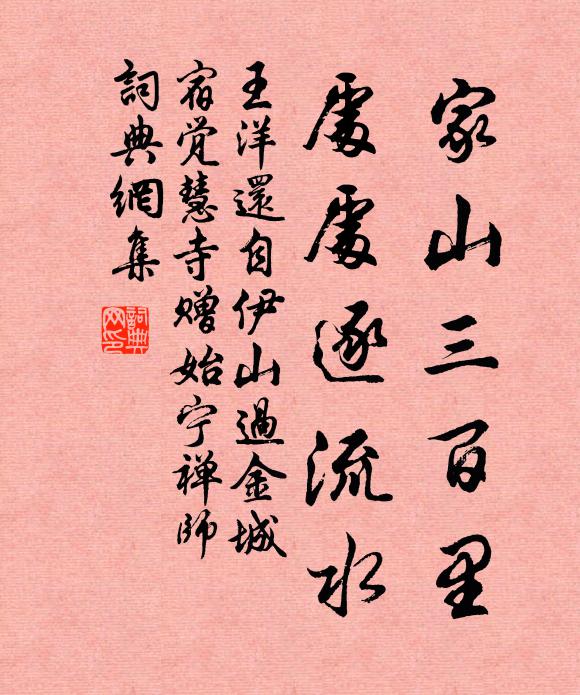 家山三百里
處處逐流水
王洋還自伊山過金城
宿覚慧寺赠始宁禅師
詞典網集
詞典网印